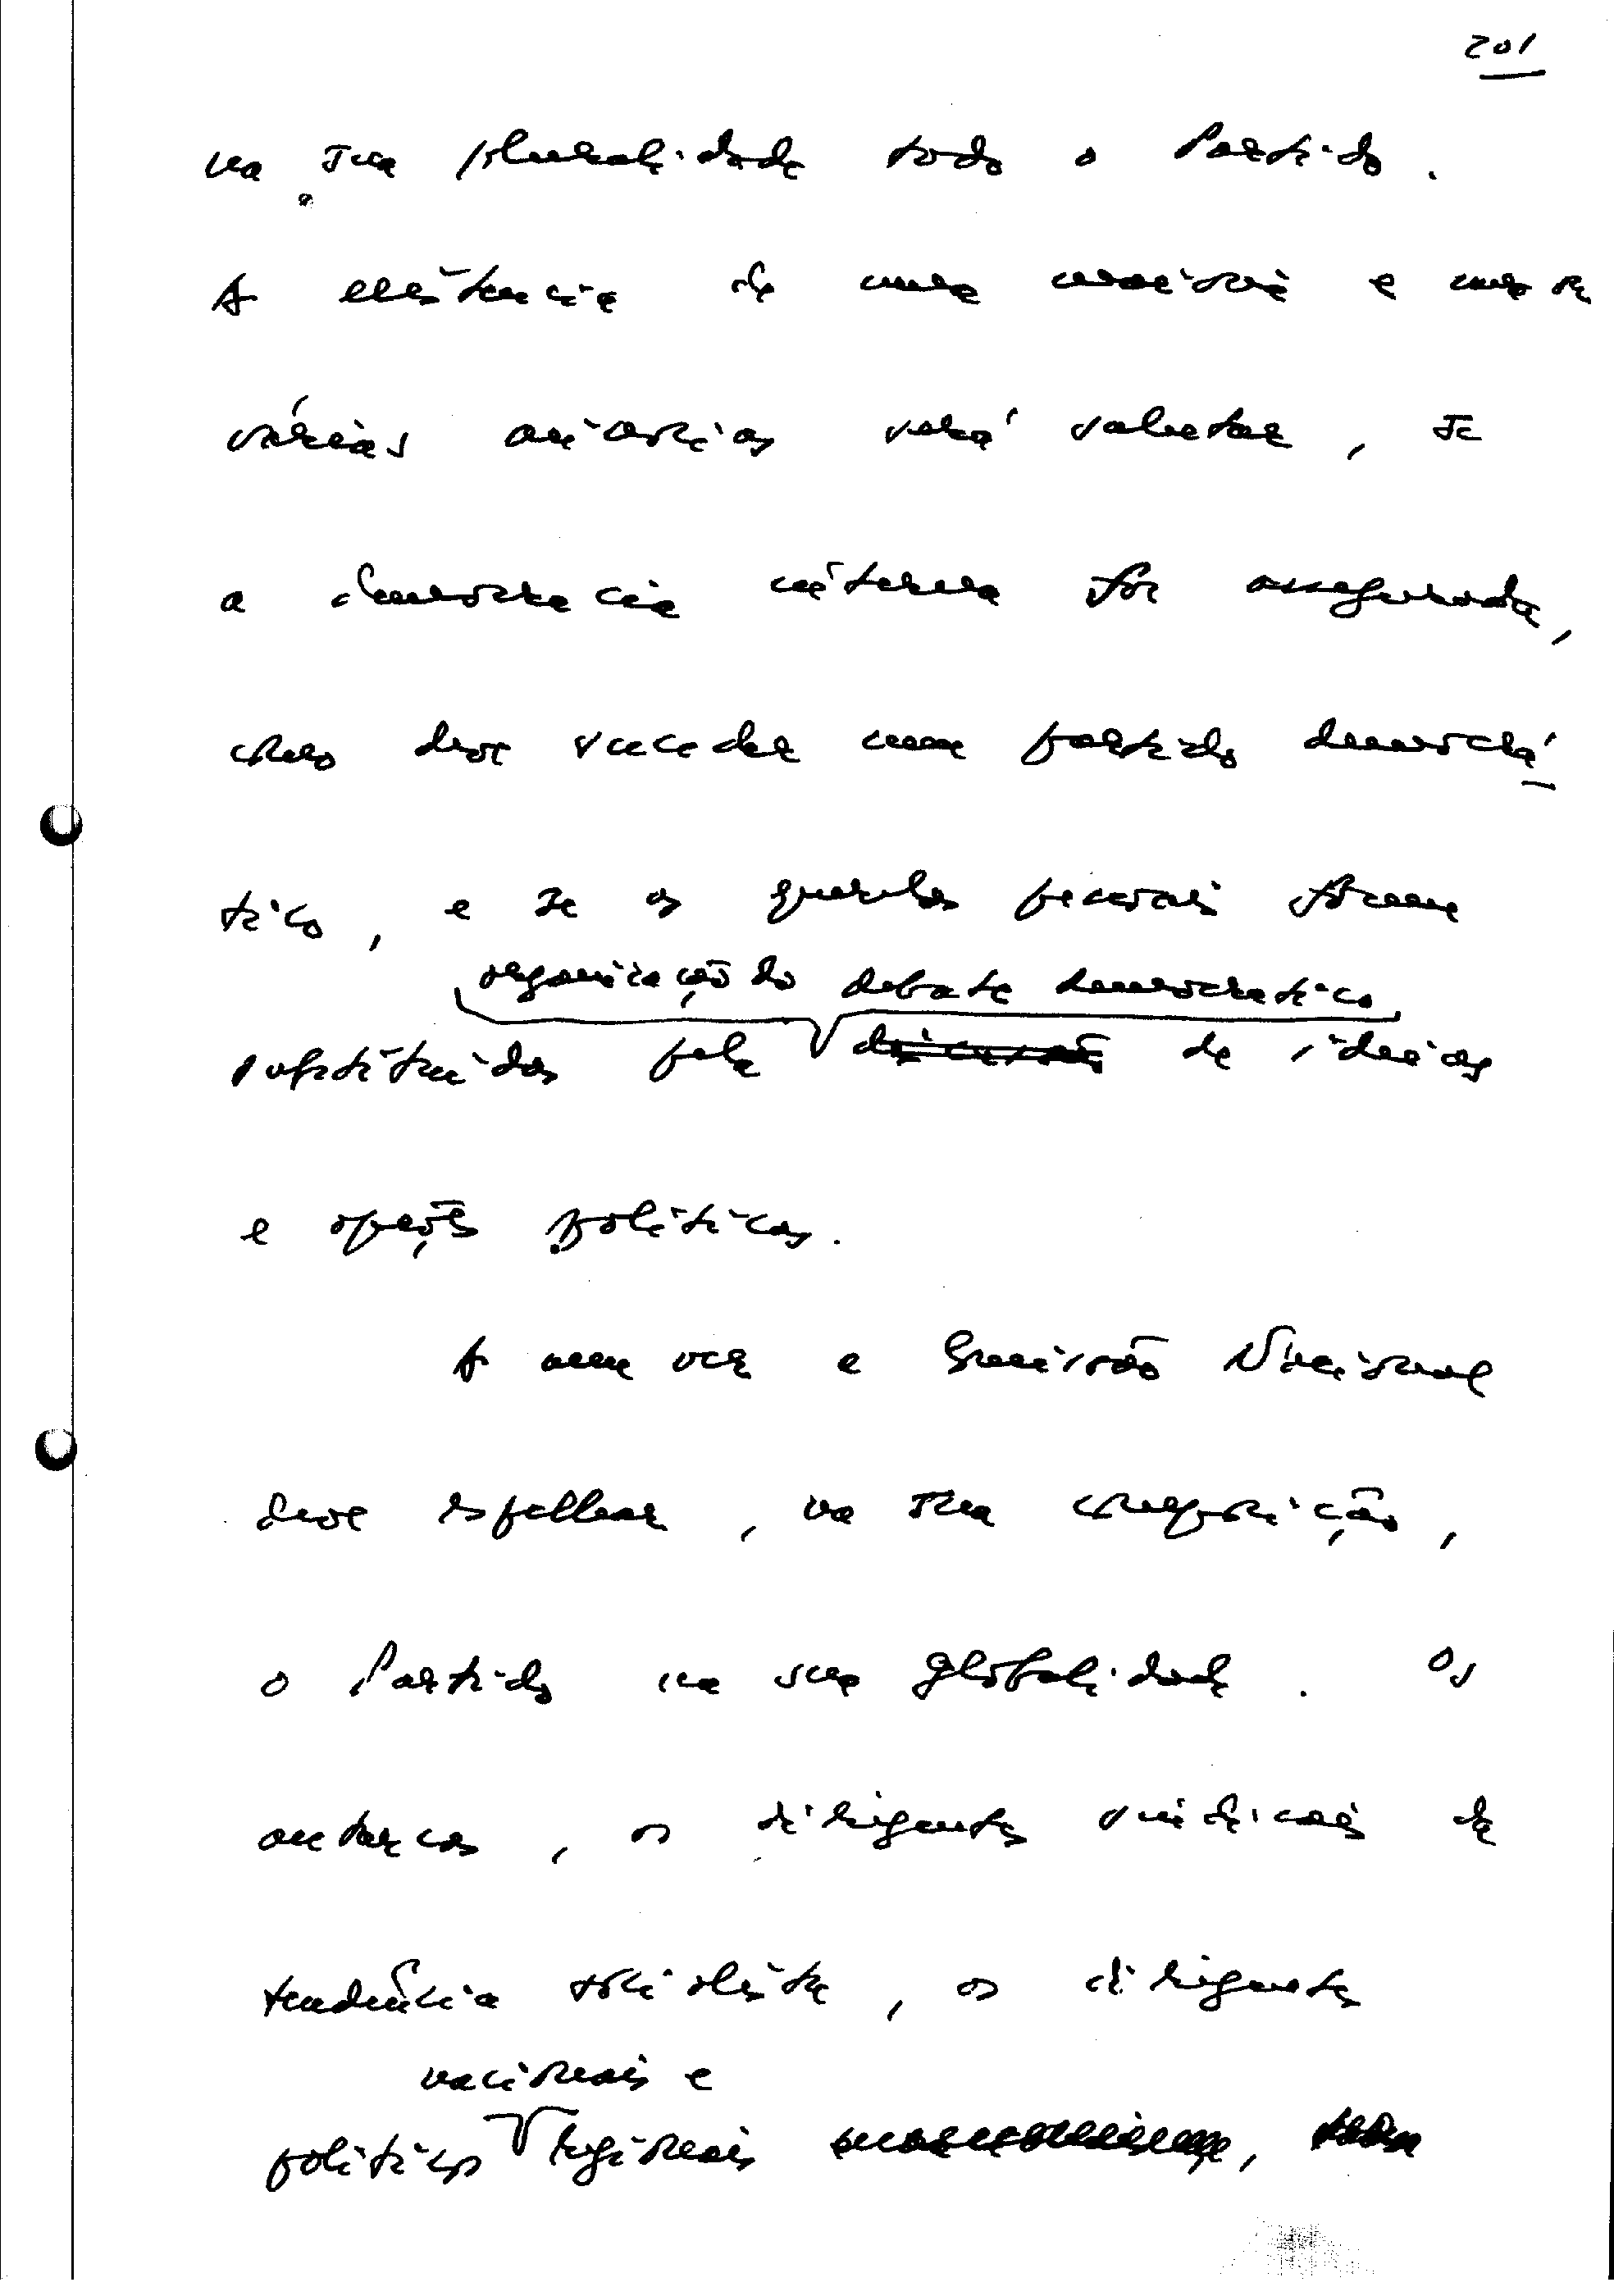 201
na sua pluralidade todo o Partido.
A existência de uma maioria e uma ou
várias minorias será salutar, se
a democracia interna for assegurada,
como deve suceder num partido democrá
tico, e se as querelas pessoais forem
organização do debate democrático
substituídas pela discussão de ideias
e opções políticas.
A meu ver a Comissão Nacional
deve espelhar, na sua composição,
o Partido na sua globalidade. Os
autarcas, os dirigentes sindicais da
tendência socialista, os dirigentes
nacionais e
políticos regionais